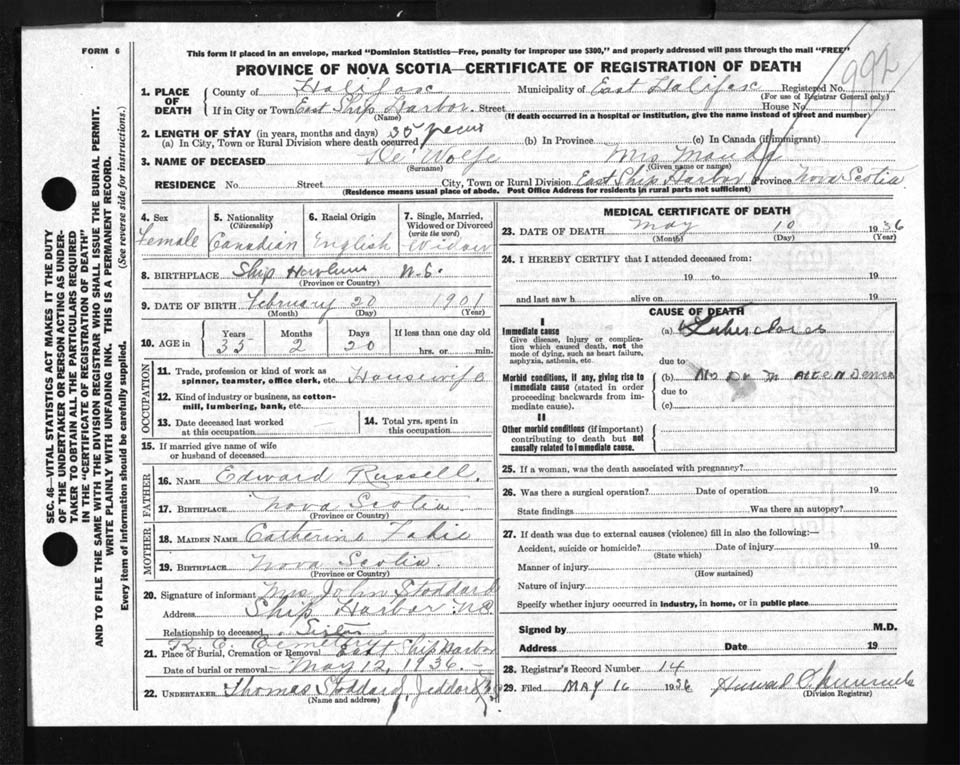 FORM 6
This form if placed in an envelope, marked "Dominion Statistics—Free, penalty for improper use $300," and properly addressed will pass through the mail "FREE"
PROVINCE OF NOVA SCOTIA—CERTIFICATE OF REGISTRATION OF DEATH
992
1. PLACE OF DEATH
County of Halifax Municipality of East Halifax Registered No.
(For use of Registrar General only)
If in City or Town East Ship Harbor Street House No.
(Name) (If death occurred in a hospital or institution, give the name instead of street and number)
2. LENGTH OF STAY (in years, months and days)
(a) In City, Town or Rural Division where death occurred 35 years (b) In Province (c) In Canada (if immigrant)
3. NAME OF DECEASED De'Wolfe Mrs
(Surname) (Given name or names)
RESIDENCE No Street City, Town or Rural Division East Ship Harbor Province Nova Scotia
(Residence means usual place of abode. Post Office Address for residents in rural parts not sufficient)
4. Sex
Female
5. Nationality (Citizenship)
Canadian
6. Racial Origin
English
7. Single, Married, Widowed or Divorced (write the word)
Widow
8. BIRTHPLACE Ship N.S.
(Province or Country)
9. DATE OF BIRTH February 20 1901
(Month) (Day) (Year)
10. AGE in Years Months Days If less than one day old
35 2 20 hrs. or min.
OCCUPATION
11. Trade, profession or kind of work as spinner, teamster, office clerk, etc. Housewife
12. Kind of industry or business, as cotton-mill, lumbering, bank, etc.
13. Date deceased last worked at this occupation
14. Total yrs. spent in this occupation
15. If married give name of wife or husband of deceased
FATHER
16. NAME Edward Russell.
17. BIRTHPLACE Nova Scotia
(Province or Country)
MOTHER
18. MAIDEN NAME Catherine
19. BIRTHPLACE Nova Scotia.
(Province or Country)
20. Signature of informant Mrs John Stoddard
Address Ship Harbor N.S.
Relationship to deceased Sister
21. Place of Burial, Cremation or Removal East Ship Harbor
Date of burial or removal May 12, 1936.
22. UNDERTAKER Thomas Stoddard, Jeddore
(Name and address)
MEDICAL CERTIFICATE OF DEATH
23. DATE OF DEATH May 10 1936
(Month) (Day) (Year)
24. I HEREBY CERTIFY that I attended deceased from:
19 to 19
and last saw h alive on 19
CAUSE OF DEATH
I
Immediate cause
Give disease, injury or complication which caused death, not the mode of dying, such as heart failure, asphyxia, asthenia, etc.
(a)
due to
Morbid conditions, if any, giving rise to immediate cause (stated in order proceeding backwards from immediate cause).
(b) No Dr in Attendence
due to
(c)
II
Other morbid conditions (if important) contributing to death but not causally related to immediate cause.
25. If a woman, was the death associated with pregnancy?
26. Was there a surgical operation? Date of operation 19
State findings Was there an autopsy?
27. If death was due to external causes (violence) fill in also the following:—
Accident, suicide or homicide? Date of injury 19
(State which)
Manner of injury
(How sustained)
Nature of injury
Specify whether injury occurred in industry, in home, or in public place
Signed by M.D.
Address Date 19
28. Registrar's Record Number 14
29. Filed MAY 16 1936
(Division Registrar)
SEC. 46—VITAL STATISTICS ACT MAKES IT THE DUTY
OF THE UNDERTAKER OR PERSON ACTING AS UNDER-
TAKER TO OBTAIN ALL THE PARTICULARS REQUIRED
IN THE "CERTIFICATE OF REGISTRATION OF DEATH"
AND TO FILE THE SAME WITH THE DIVISION REGISTRAR WHO SHALL ISSUE THE BURIAL PERMIT.
WRITE PLAINLY WITH UNFADING INK. THIS IS A PERMANENT RECORD.
Every item of information should be carefully supplied. (See reverse side for instructions.)